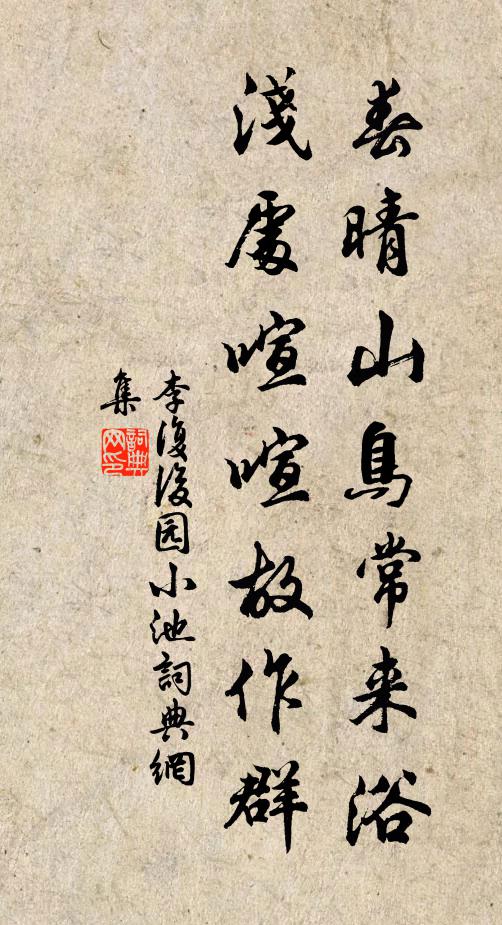 春晴山鳥常来浴
淺處喧喧故作群
李復後园小池詞典網
集
詞典网印